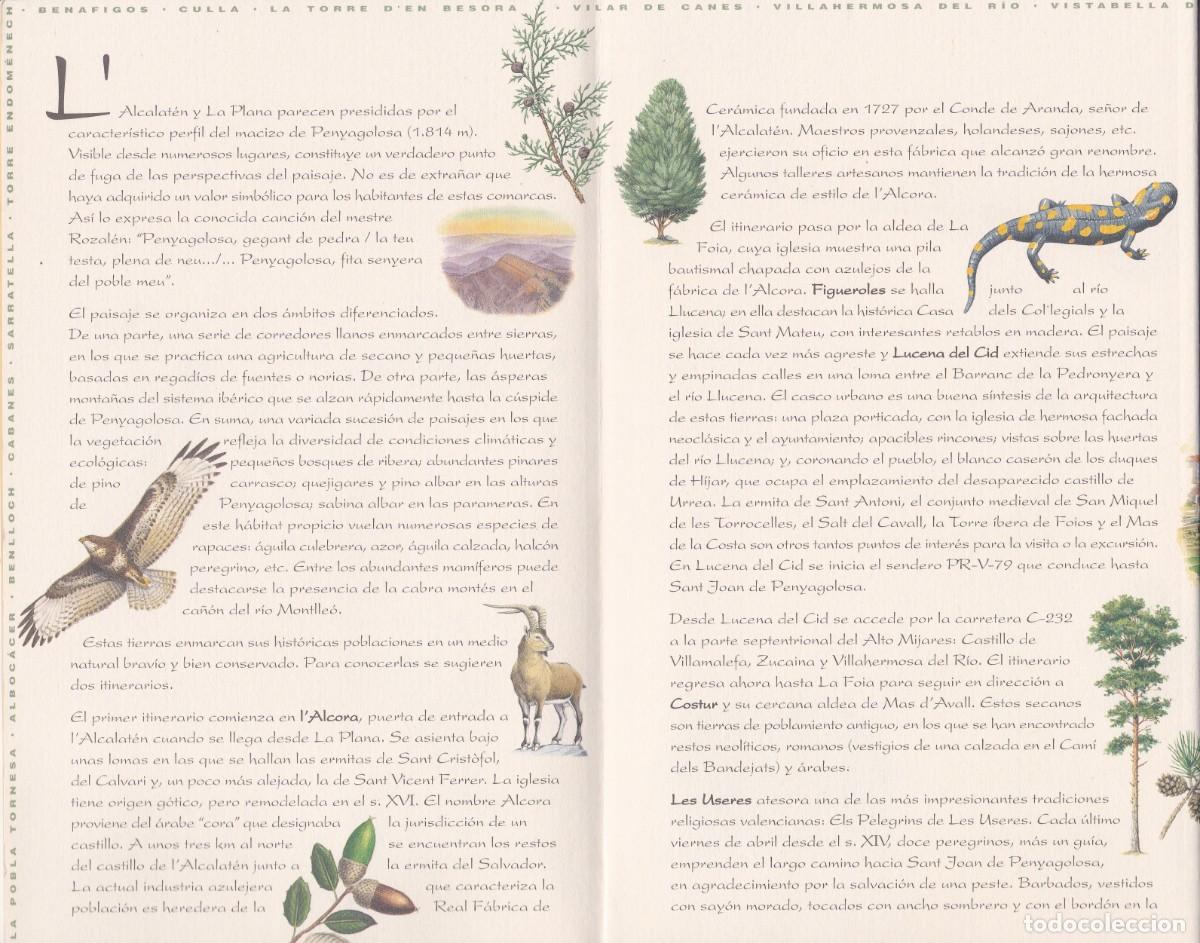 · BENAFIGOS · CULLA · LA TORRE D'EN BESORA · VILAR DE CANES · VILLAHERMOSA DEL RÍO · VISTABELLA D
LA POBLA TORNESA · ALBOCÀCER · BENLLOCH · CABANES · SARRATELLA · TORRE ENDOMÉNECH
L'
Alcalatén y La Plana parecen presididas por el
característico perfil del macizo de Penyagolosa (1.814 m).
Visible desde numerosos lugares, constituye un verdadero punto
de fuga de las perspectivas del paisaje. No es de extrañar que
haya adquirido un valor simbólico para los habitantes de estas comarcas.
Así lo expresa la conocida canción del mestre
Rozalén: "Penyagolosa, gegant de pedra / la teu
testa, plena de neu.../... Penyagolosa, fita senyera
del poble meu".
El paisaje se organiza en dos ámbitos diferenciados.
De una parte, una serie de corredores llanos enmarcados entre sierras,
en los que se practica una agricultura de secano y pequeñas huertas,
basadas en regadíos de fuentes o norias. De otra parte, las ásperas
montañas del sistema ibérico que se alzan rápidamente hasta la cúspide
de Penyagolosa. En suma, una variada sucesión de paisajes en los que
la vegetación refleja la diversidad de condiciones climáticas y
ecológicas: pequeños bosques de ribera; abundantes pinares
de pino carrasco; quejigares y pino albar en las alturas
de Penyagolosa; sabina albar en las parameras. En
este hábitat propicio vuelan numerosas especies de
rapaces: águila culebrera, azor, águila calzada, halcón
peregrino, etc. Entre los abundantes mamíferos puede
destacarse la presencia de la cabra montés en el
cañón del río Montlleó.
Estas tierras enmarcan sus históricas poblaciones en un medio
natural bravío y bien conservado. Para conocerlas se sugieren
dos itinerarios.
El primer itinerario comienza en l'Alcora, puerta de entrada a
l'Alcalatén cuando se llega desde La Plana. Se asienta bajo
unas lomas en las que se hallan las ermitas de Sant Cristòfol,
del Calvari y, un poco más alejada, la de Sant Vicent Ferrer. La iglesia
tiene origen gótico, pero remodelada en el s. XVI. El nombre Alcora
proviene del árabe "cora" que designaba la jurisdicción de un
castillo. A unos tres km al norte se encuentran los restos
del castillo de l'Alcalatén junto a la ermita del Salvador.
La actual industria azulejera que caracteriza la
población es heredera de la Real Fábrica de
Cerámica fundada en 1727 por el Conde de Aranda, señor de
l'Alcalatén. Maestros provenzales, holandeses, sajones, etc.
ejercieron su oficio en esta fábrica que alcanzó gran renombre.
Algunos talleres artesanos mantienen la tradición de la hermosa
cerámica de estilo de l'Alcora.
El itinerario pasa por la aldea de La
Foia, cuya iglesia muestra una pila
bautismal chapada con azulejos de la
fábrica de l'Alcora. Figueroles se halla junto al río
Llucena; en ella destacan la histórica Casa dels Col·legials y la
iglesia de Sant Mateu, con interesantes retablos en madera. El paisaje
se hace cada vez más agreste y Lucena del Cid extiende sus estrechas
y empinadas calles en una loma entre el Barranc de la Pedronyera y
el río Llucena. El casco urbano es una buena síntesis de la arquitectura
de estas tierras: una plaza porticada, con la iglesia de hermosa fachada
neoclásica y el ayuntamiento; apacibles rincones; vistas sobre las huertas
del río Llucena; y, coronando el pueblo, el blanco caserón de los duques
de Híjar, que ocupa el emplazamiento del desaparecido castillo de
Urrea. La ermita de Sant Antoni, el conjunto medieval de San Miquel
de les Torrocelles, el Salt del Cavall, la Torre íbera de Foios y el Mas
de la Costa son otros tantos puntos de interés para la visita o la excursión.
En Lucena del Cid se inicia el sendero PR-V-79 que conduce hasta
Sant Joan de Penyagolosa.
Desde Lucena del Cid se accede por la carretera C-232
a la parte septentrional del Alto Mijares: Castillo de
Villamalefa, Zucaina y Villahermosa del Río. El itinerario
regresa ahora hasta La Foia para seguir en dirección a
Costur y su cercana aldea de Mas d'Avall. Estos secanos
son tierras de poblamiento antiguo, en los que se han encontrado
restos neolíticos, romanos (vestigios de una calzada en el Camí
dels Bandejats) y árabes.
Les Useres atesora una de las más impresionantes tradiciones
religiosas valencianas: Els Pelegrins de Les Useres. Cada último
viernes de abril desde el s. XIV, doce peregrinos, más un guía,
emprenden el largo camino hacia Sant Joan de Penyagolosa,
en agradecimiento por la salvación de una peste. Barbados, vestidos
con sayón morado, tocados con ancho sombrero y con el bordón en la
todocoleccion